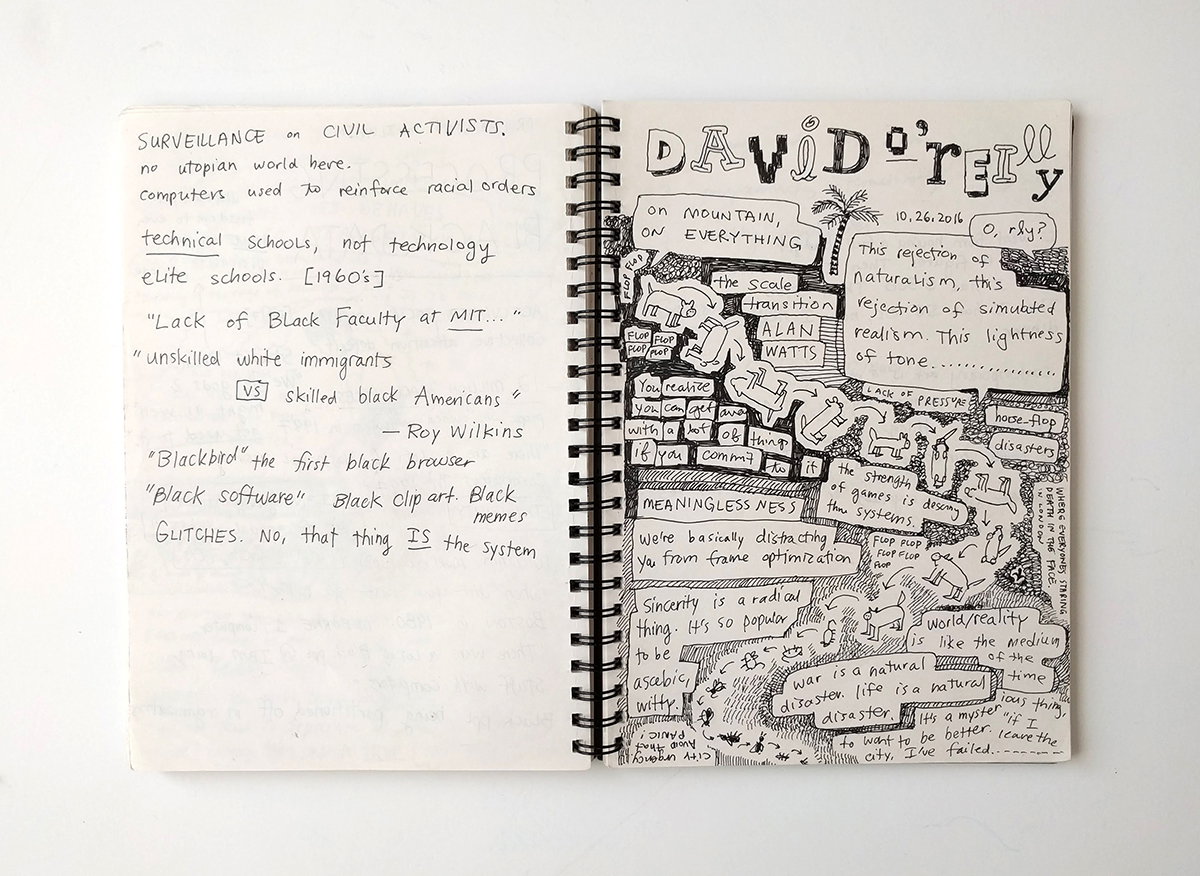 SURVEILLANCE on CIVIL ACTIVISTS.
no utopian world here.
computers used to reinforce racial orders
technical schools, not technology
elite schools. [1960's]
"Lack of Black Faculty at MIT..."
"unskilled white immigrants
VS skilled black Americans"
— Roy Wilkins
"Blackbird" the first black browser
"Black software" Black clip art. Black
memes
GLITCHES. NO, that thing IS the system
DAViD O'REIlly
10.26.2016
ON MOUNTAIN,
ON EVERYTHING
O, rly?
This rejection of
naturalism, this
rejection of simulated
realism. This lightness
of tone................
FLOP FLOP
FLOP
the scale
transition
ALAN
WATTS
FLOP FLOP
FLOP FLOP
You realize
you can get
with a lot of things
if you commit to it
LACK OF PRESSURE
horse-flop
disasters
the strength
of games is
systems.
MEANINGLESSNESS
we're basically distracting
you from frame optimization
FLOP FLOP
FLOP FLOP
FLOP
WHERE EVERYONE'S STARING
DEATH IN THE FACE.
IN LONDON
Sincerity is a radical
thing. It's so popular
to be
ascebic,
witty.
world/reality
is like the medium
of the
time
war is a natural
disaster. life is a natural
disaster.
It's a mysterious thing,
to want to be better. "if I leave the
city, I've failed.-------
CITY URGENCY
AVOID THAT
PANIC.